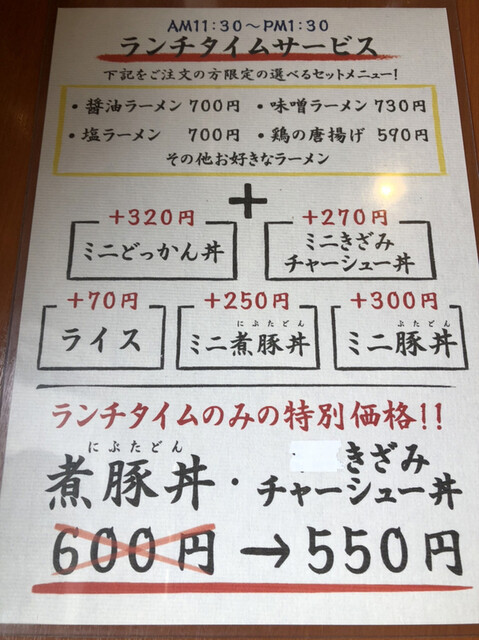 AM11:30～PM1:30
ランチタイムサービス
下記をご注文の方限定の選べるセットメニュー!
・醤油ラーメン 700円 ・味噌ラーメン 730円
・塩ラーメン 700円 ・鶏の唐揚げ 590円
その他お好きなラーメン
+
+320円 +270円
ミニどっかん丼 ミニきざみ
チャーシュー丼
+70円 +250円 +300円
にぶたどん ぶたどん
ライス ミニ煮豚丼 ミニ豚丼
ランチタイムのみの特別価格!!
にぶたどん
煮豚丼・きざみ
チャーシュー丼
600円→550円